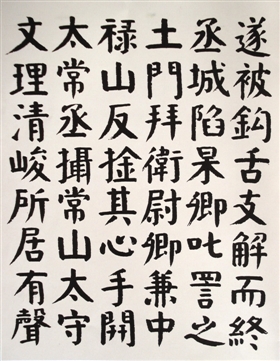 文理清峻所居有聲
太常丞攝常山太守
禄山反捦其心手開
土門拜衛尉卿兼中
丞城陷杲卿叱詈之
遂被鉤舌支解而終